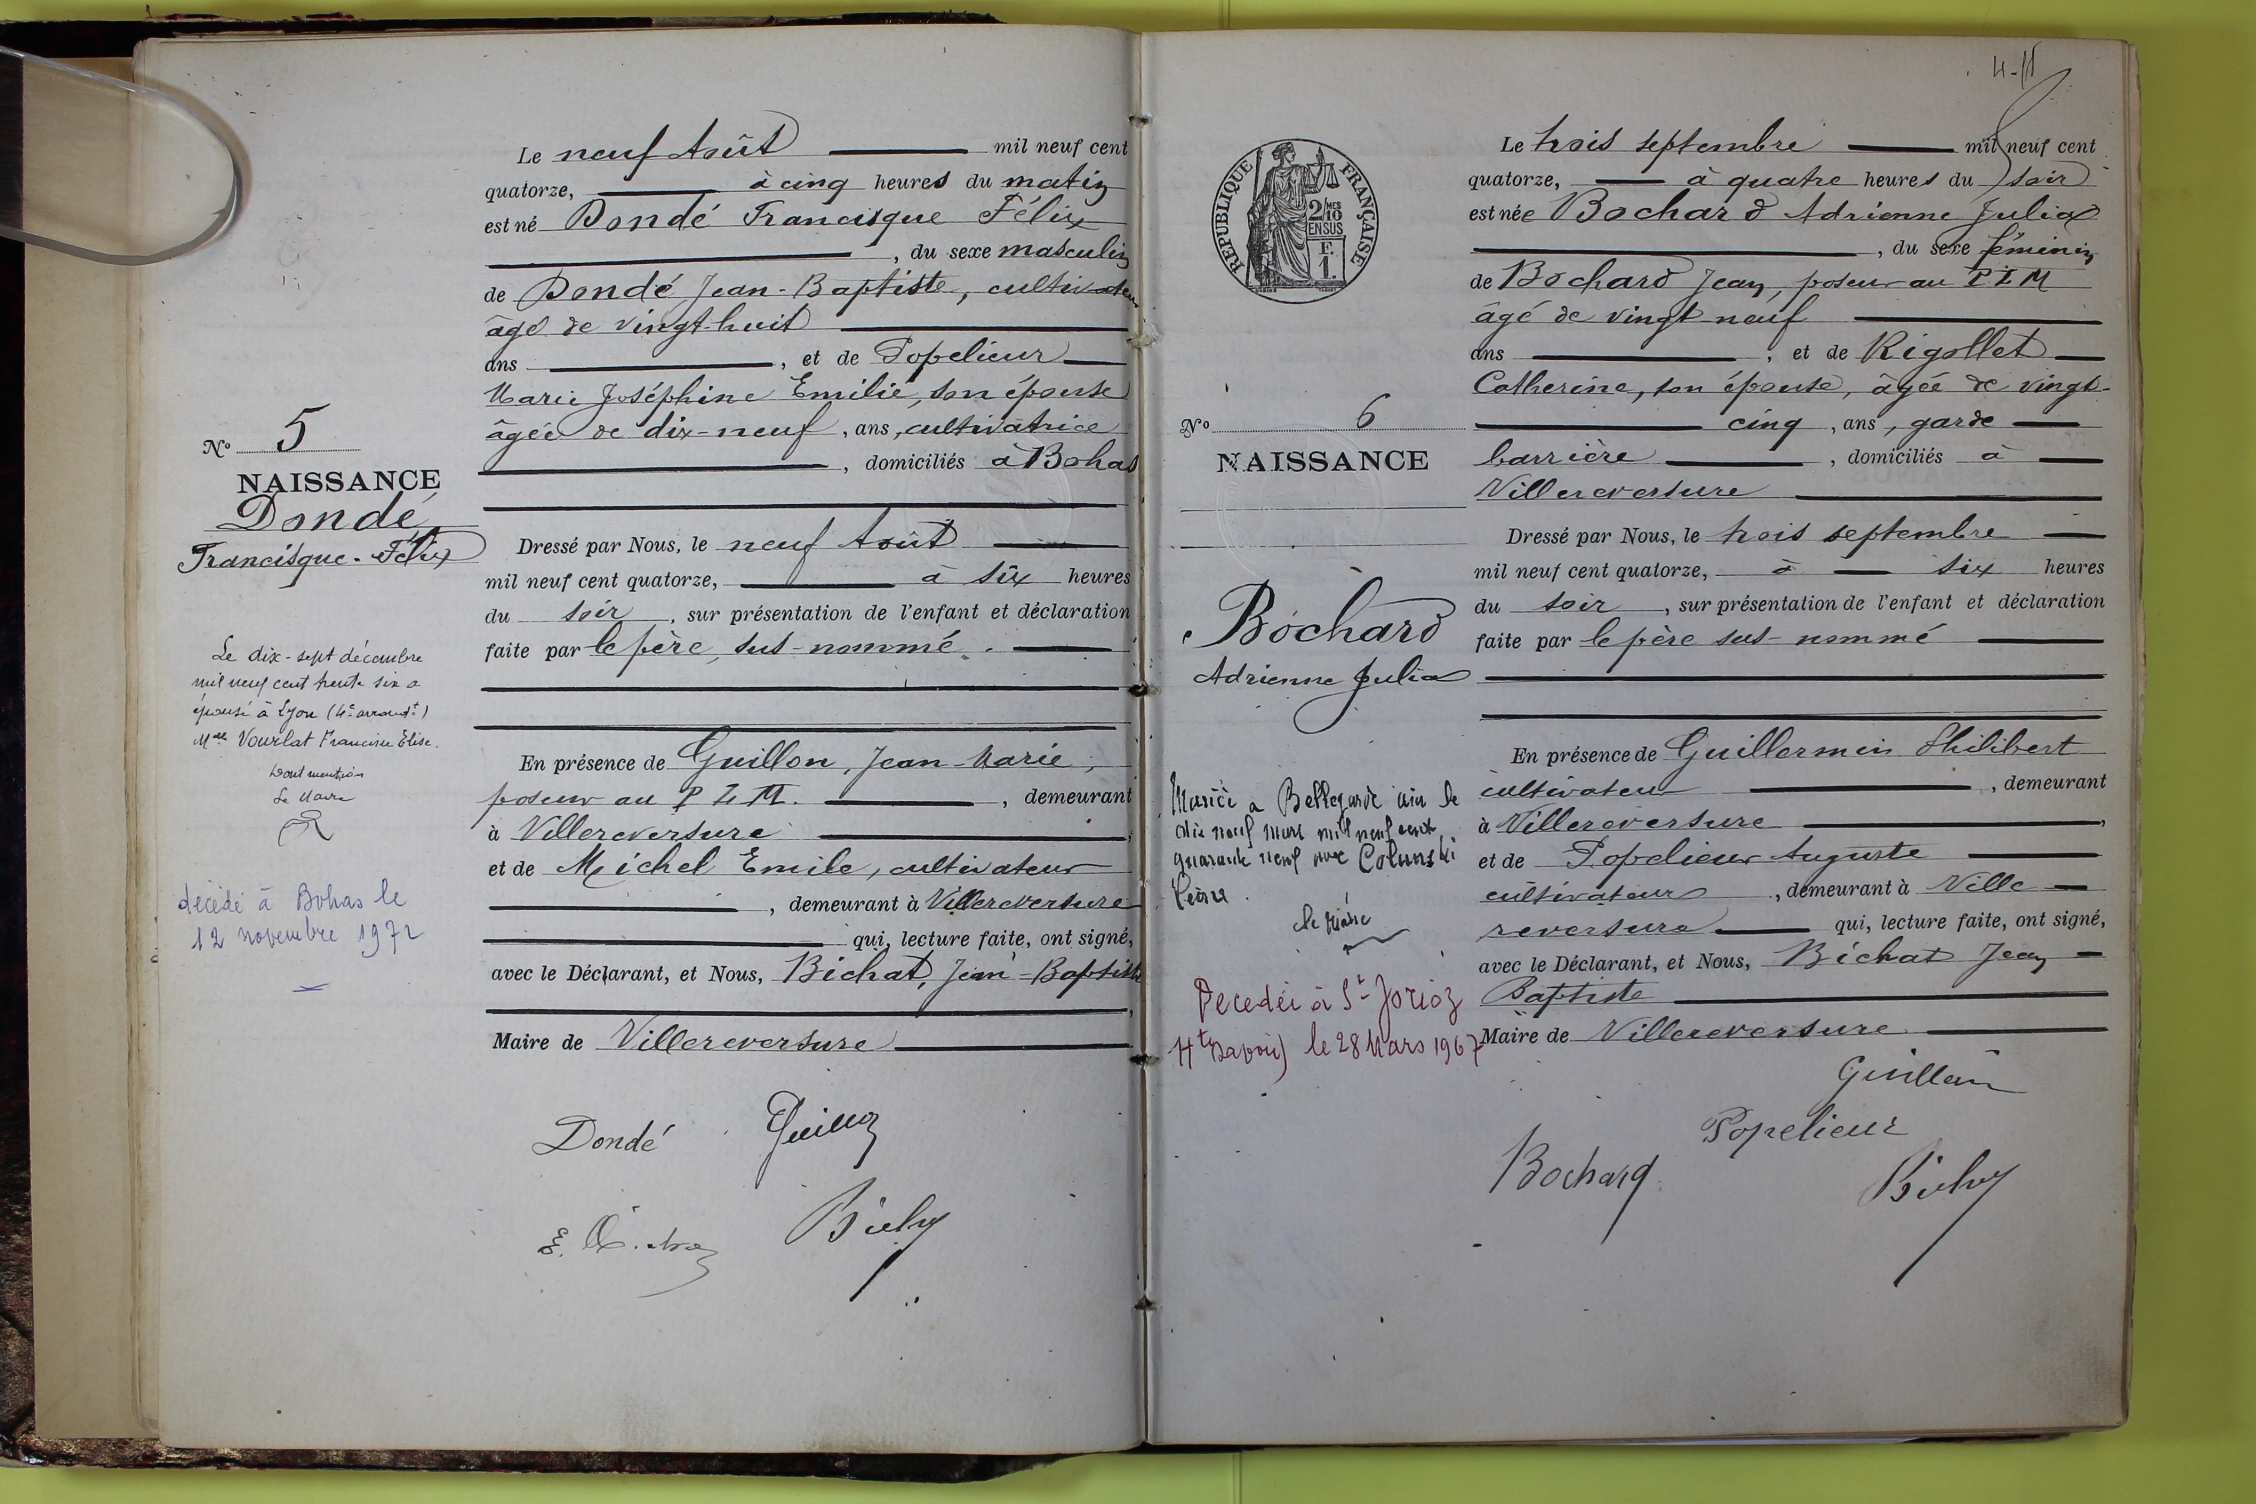 Le neuf Août mil neuf cent
quatorze, à cinq heures du matin
est né Dondé Francisque Félix
, du sexe masculin
de Dondé Jean-Baptiste, cultivateur
âgé de vingt-huit
ans , et de Popelieur
Marie Joséphine Emilie, son épouse
âgée de dix-neuf , ans, cultivatrice
, domiciliés à Bohas
N° 5
NAISSANCE
Dondé
Francisque-Félix
Dressé par Nous, le neuf Août
mil neuf cent quatorze, à six heures
du soir , sur présentation de l'enfant et déclaration
faite par le père, sus-nommé.
Le dix-sept décembre
mil neuf cent trente six a
épousé à Lyon (4e arrondt)
Melle Vourlat Francine Elise.
Dont mention
Le Maire
décédé à Bohas le
12 novembre 1972
En présence de Guillon, Jean-Marie,
poseur au P L M. , demeurant
à Villereversure ,
et de Michel Emile, cultivateur
, demeurant à Villereversure
qui, lecture faite, ont signé,
avec le Déclarant, et Nous, Bichat, Jean-Baptiste
Maire de Villereversure
Dondé
4-
RÉPUBLIQUE FRANÇAISE
2/10 MES
EN SUS
F
1.
Le trois septembre mil neuf cent
quatorze, à quatre heures du soir
est née Bochard Adrienne Julia
, du sexe féminin
de Bochard Jean, poseur au P L M
âgé de vingt-neuf
ans , et de Rigollet
Catherine, son épouse, âgée de vingt-
cinq , ans, garde
barrière , domiciliés à
Villereversure
N° 6
NAISSANCE
Bochard
Adrienne Julia
Dressé par Nous, le trois septembre
mil neuf cent quatorze, à six heures
du soir , sur présentation de l'enfant et déclaration
faite par le père sus-nommé
Mariée a Bellegarde Ain le
dix neuf mars mil neuf cent
quarante neuf avec Colunski
Le Maire
Decedée à St Jorioz
Hte Savoie) le 28 Mars 1967
En présence de Guillermin Philibert
cultivateur , demeurant
à Villereversure ,
et de Popelieur Auguste
cultivateur , demeurant à Ville
reversure qui, lecture faite, ont signé,
avec le Déclarant, et Nous, Bichat Jean
Baptiste
Maire de Villereversure
Popelieur
Bochard